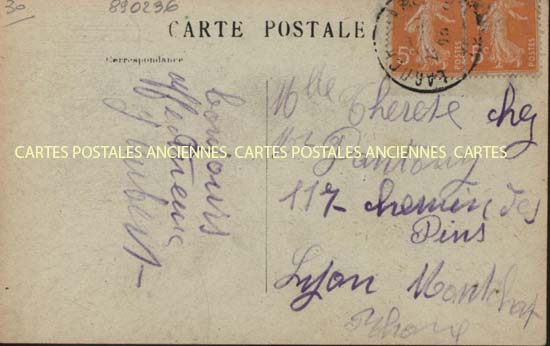 30
890236
CARTE POSTALE
Correspondance
bonjours
affectueux
Joubert
CARTES POSTALES ANCIENNES CARTES POSTALES ANCIENNES CARTES
5c POSTES
Mlle Therese chez
117 chemin des
Pins
Lyon Montchat
Rhone